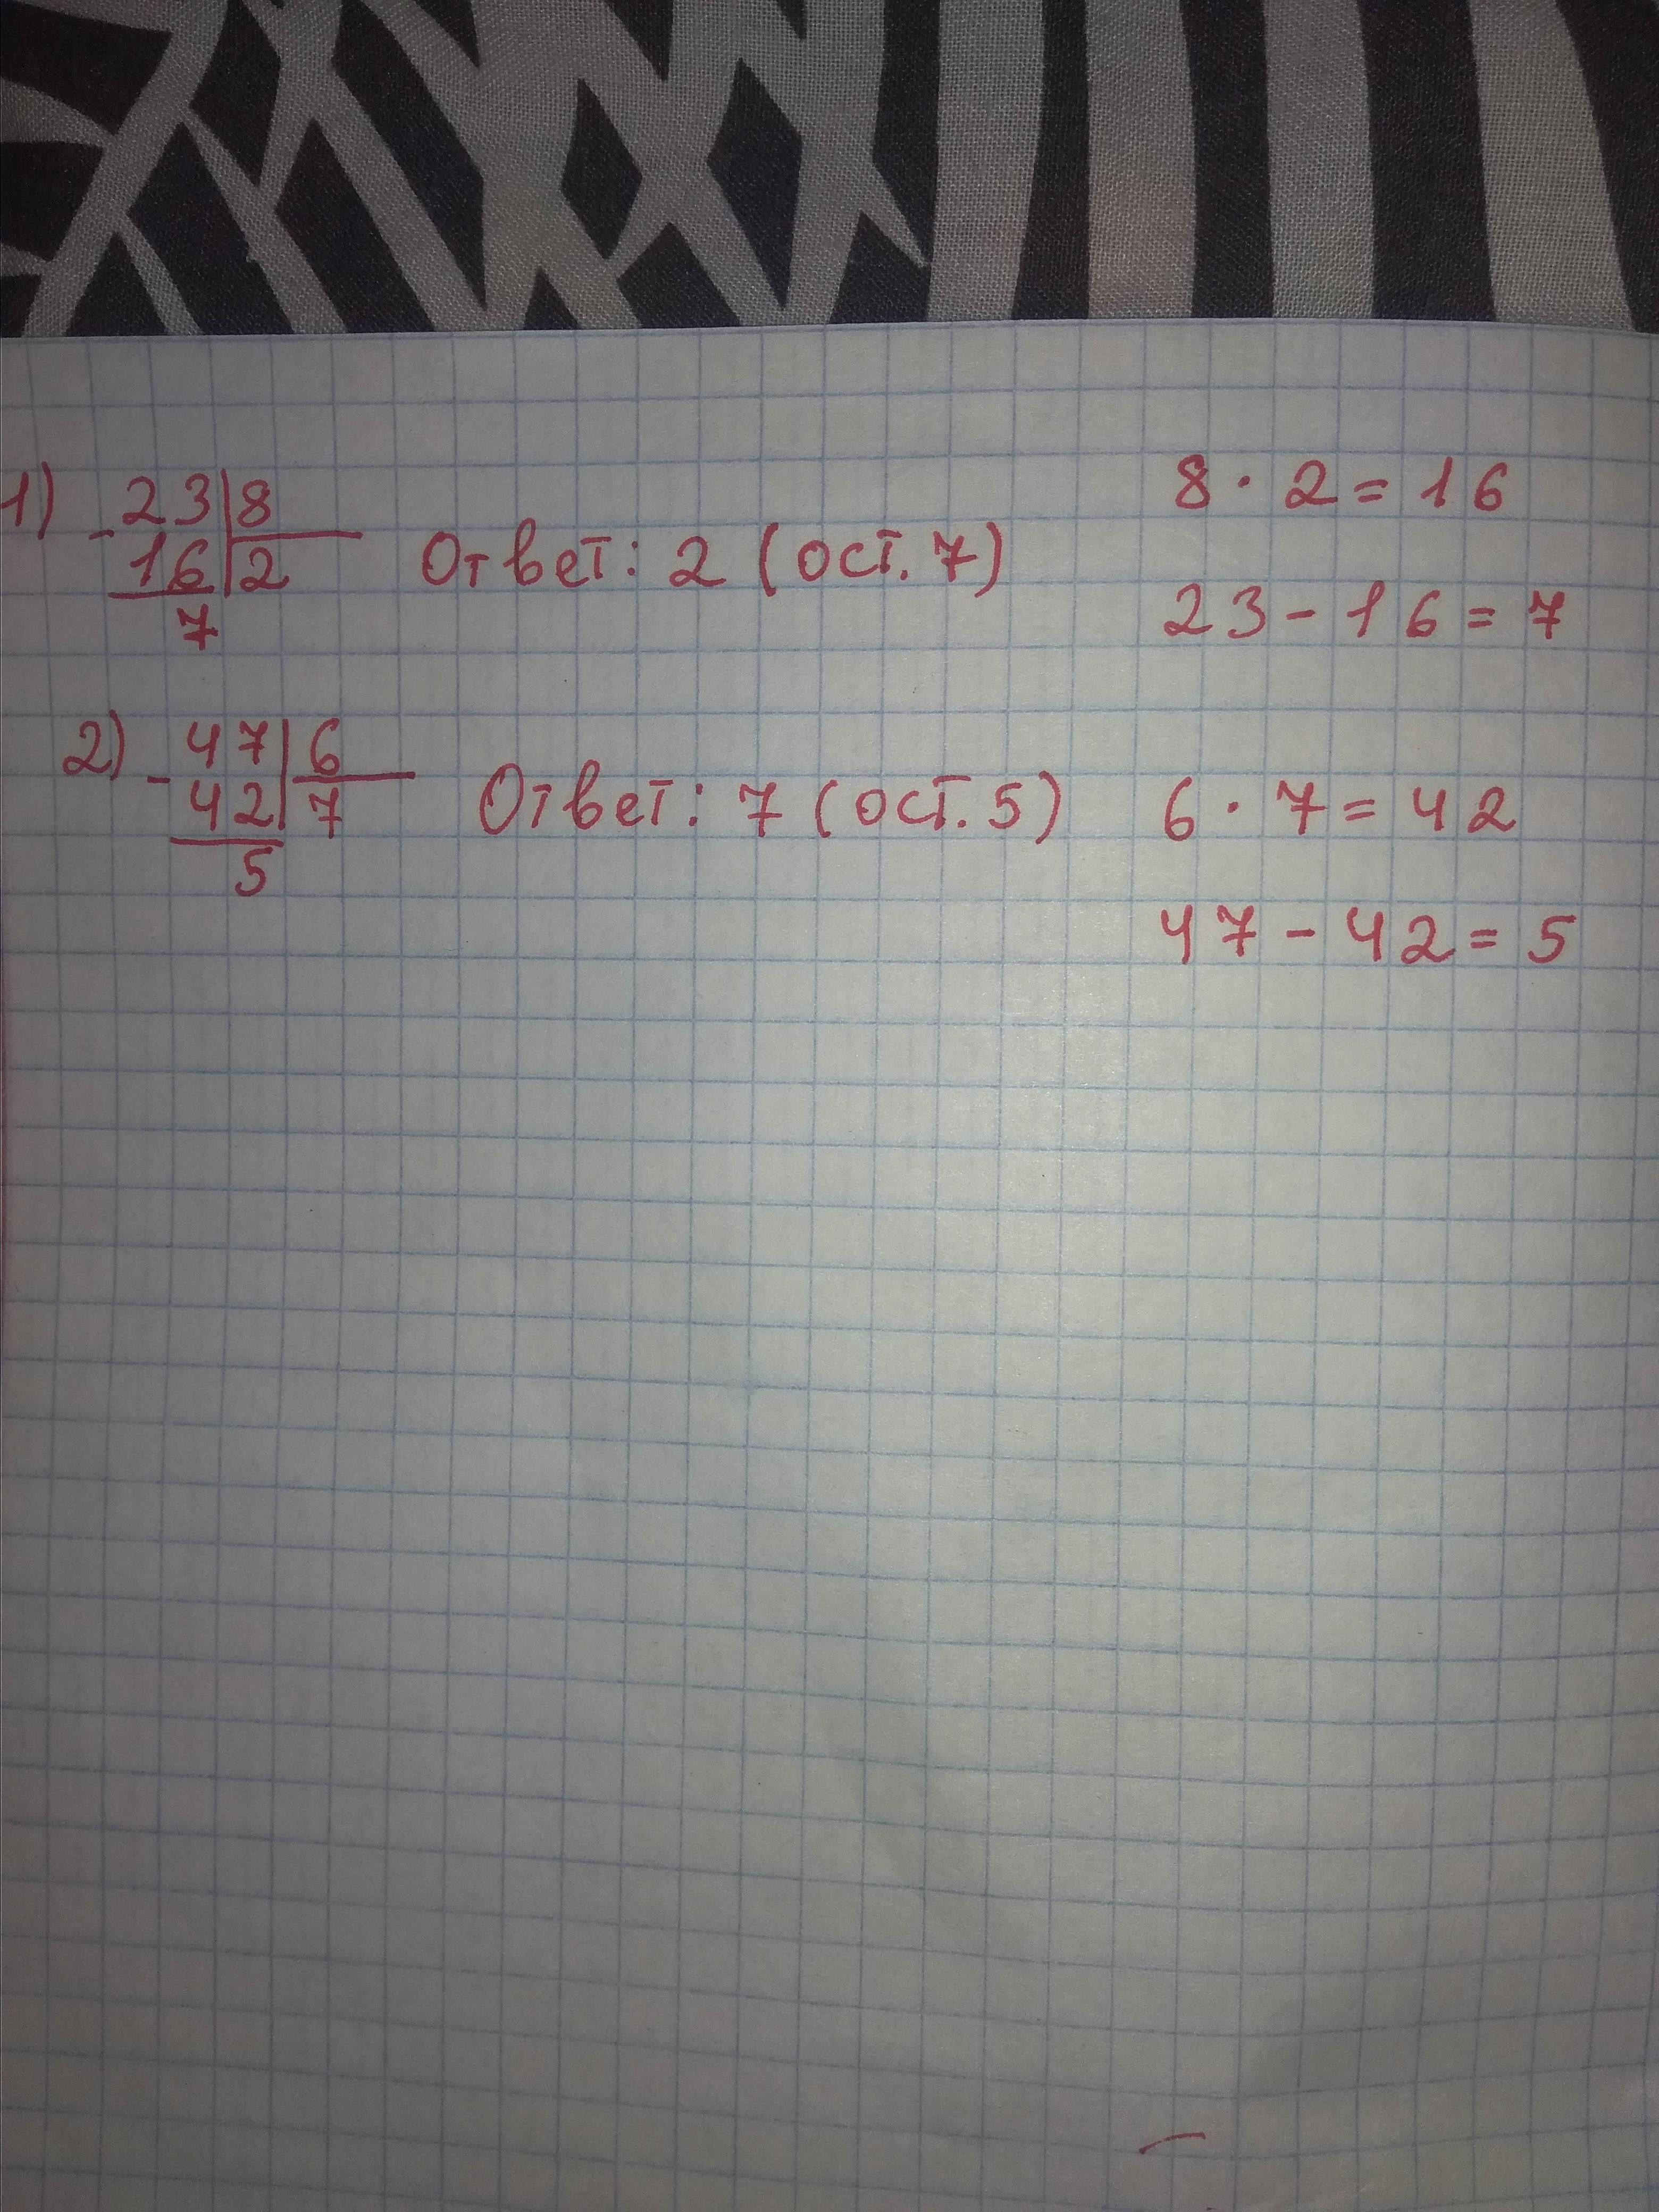 1) - 23 | 8
16 | 2 Ответ: 2 (ост. 7)
7
8 · 2 = 16
23 - 16 = 7
2) - 47 | 6
42 | 7 Ответ: 7 (ост. 5)
5
6 · 7 = 42
47 - 42 = 5